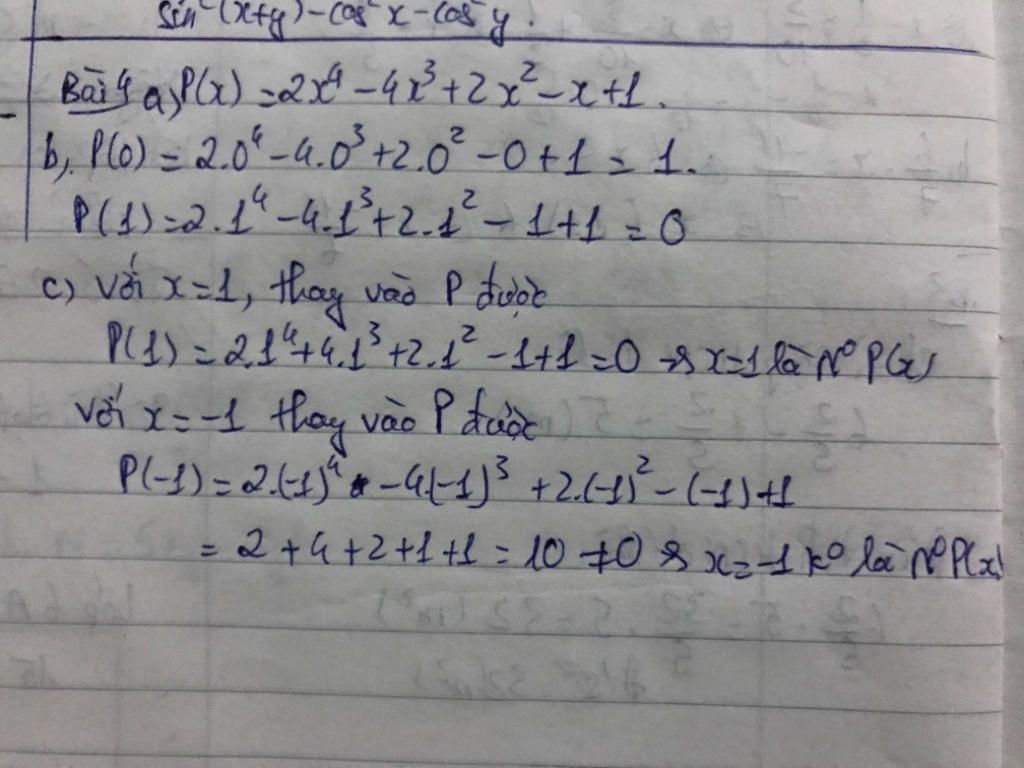 sin²(x+y)-cos²x-cos²y.
Bài 4 a, P(x) = 2x⁴ - 4x³ + 2x² - x + 1.
b, P(0) = 2.0⁴ - 4.0³ + 2.0² - 0 + 1 = 1.
P(1) = 2.1⁴ - 4.1³ + 2.1² - 1 + 1 = 0
c) với x=1, thay vào P được
P(1) = 2.1⁴ + 4.1³ + 2.1² - 1 + 1 = 0 → x=1 là N⁰ P(x)
với x=-1 thay vào P được
P(-1) = 2.(-1)⁴ - 4(-1)³ + 2.(-1)² - (-1) + 1
= 2 + 4 + 2 + 1 + 1 = 10 ≠ 0 → x=-1 k⁰ là N⁰ P(x)